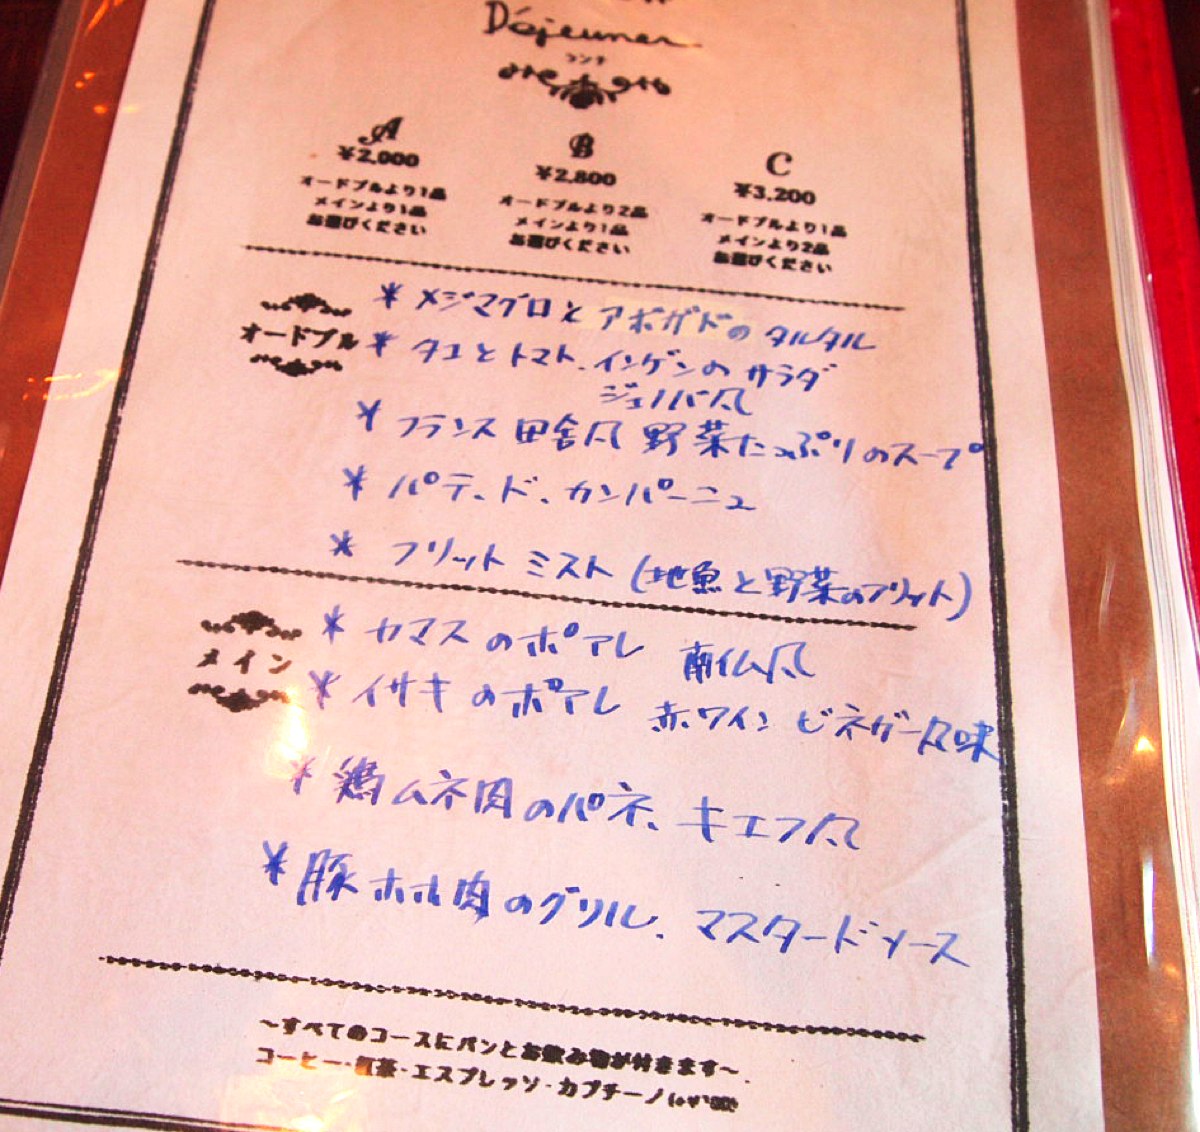 Déjeuner
ランチ
A
¥2,000
オードブルより1品
メインより1品
お選びください
B
¥2,800
オードブルより2品
メインより1品
お選びください
C
¥3,200
オードブルより1品
メインより2品
お選びください
オードブル
* メジマグロとアボガドのタルタル
* タコとトマト、インゲンのサラダ
ジェノバ風
* フランス田舎風 野菜たっぷりのスープ
* パテ、ド、カンパーニュ
* フリット ミスト (地魚と野菜のフリット)
メイン
* カマスのポアレ 南仏風
* イサキのポアレ 赤ワインビネガー風味
* 鶏ムネ肉のパネ、キエフ風
* 豚ホホ肉のグリル、マスタードソース
〜すべてのコースにパンとお飲み物が付きます〜
コーヒー・紅茶・エスプレッソ・カプチーノ